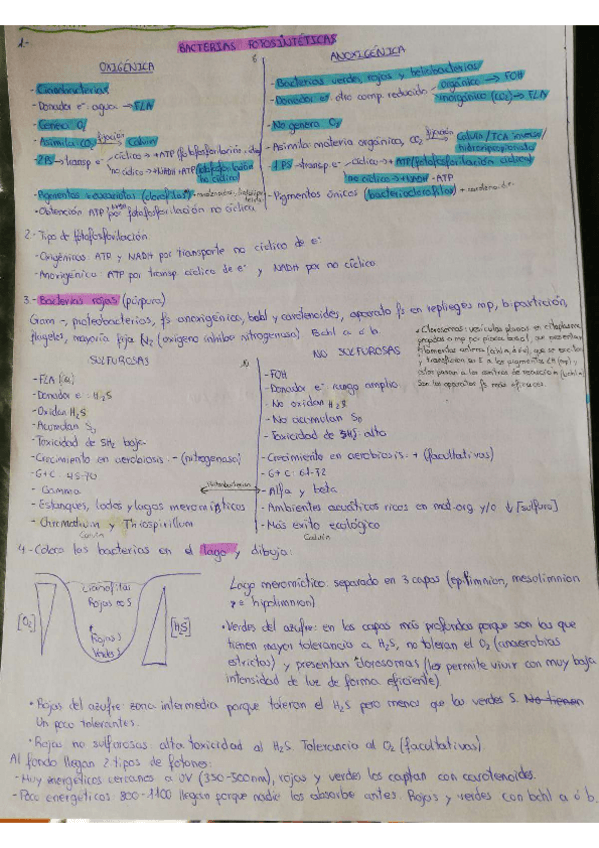 1.-
BACTERIAS FOTOSINTÉTICAS
OXIGÉNICA
ANOXIGÉNICA
- Cianobacterias
- Donador e⁻: agua → FLA
- Genera O₂
- Asimila CO₂ fijación → Calvin
- 2PS → transp. e⁻
cíclico → +ATP (fotofosforilación cíclica)
no cíclico → +NADH +ATP (fotofosforilación no cíclica)
- Pigmentos (clorofilas)
- Obtención ATP por fotofosforilación no cíclica
- Bacterias verdes, rojas y heliobacterias
- Donador e⁻: otro comp. reducido
orgánico → FOH
inorgánico (CO₂) → FLA
- No genera O₂
- Asimila materia orgánica, CO₂ fijación → Calvin / TCA inverso / hidroxipropionato
- 1 PS → transp. e⁻
cíclico → +ATP (fotofosforilación
no cíclico → +NADH -ATP
- Pigmentos únicos (bacterioclorofilas) + carotenoides
2.- Tipo de fotofosforilación
- Oxigénicas: ATP y NADH por transporte no cíclico de e⁻
- Anoxigénica: ATP por transp. cíclico de e⁻ y NADH por no cíclico
3.- Bacterias rojas (púrpura)
Gram -, proteobacterias, fs anoxigénica, bchl y carotenoides, aparato fs en repliegues mp, bipartición,
flagelos, mayoría fija N₂ (oxígeno inhibe nitrogenasa). Bchl a ó b.
SULFUROSAS
- FLA
- Donador e⁻: H₂S
- Oxidan H₂S
- Acumulan S₀
- Toxicidad de SH₂ baja
- Crecimiento en aerobiosis: - (nitrogenasa)
- G+C 45-70
- Gamma
- Estanques, lodos y lagos meromícticos
- Chromatium y Thiospirillum
Calvin
NO SULFUROSAS
- FOH
- Donador e⁻: rango amplio
- No oxidan H₂S
- No acumulan S₀
- Toxicidad de SH₂ alta
- Crecimiento en aerobiosis: + (facultativas)
- G+C: 61-72
- Alfa y beta
- Ambientes acuáticos ricos en mat. org y/o ↓[sulfuro]
- Más éxito ecológico
Calvin
• Clorosomas: vesículas planas en citoplasma
pegadas a mp por placa basal, que presentan
filamentos antena
y transfieren su E a los pigmentos
estos pasan a los centros de reacción
Son los aparatos fs más eficaces.
4.- Coloca las bacterias en el lago y dibuja:
[O₂]
Cianofilas
Rojas no S
Rojas S
Verdes
[H₂S]
Lago meromíctico: separado en 3 capas (epilimnion, mesolimnion
e hipolimnion)
• Verdes del azufre: en las capas más profundas porque son las que
tienen mayor tolerancia a H₂S, no toleran el O₂ (anaerobias
estrictas) y presentan clorosomas (les permite vivir con muy baja
intensidad de luz de forma eficiente).
• Rojas del azufre: zona intermedia porque toleran el H₂S pero menos que las verdes S. No tienen
Un poco tolerantes.
• Rojas no sulfurosas: alta toxicidad al H₂S. Tolerancia al O₂ (facultativas).
Al fondo llegan 2 tipos de fotones:
- Muy energéticos cercanos a UV (350-500nm), rojas y verdes los captan con carotenoides.
- Poco energéticos: 800-1100 llegan porque nadie los absorbe antes. Rojas y verdes con bchl a ó b.